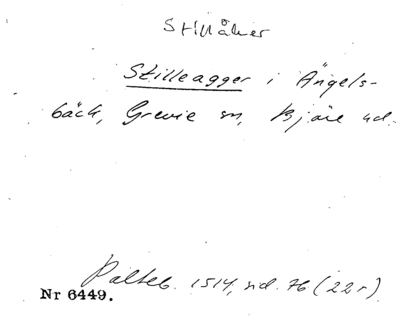 Stillåker
Stilleagger i Ängels-
bäck, Grevie sn, Bjäre hd.
Palteb. 1514, sid. 76 (22r)
Nr 6449.